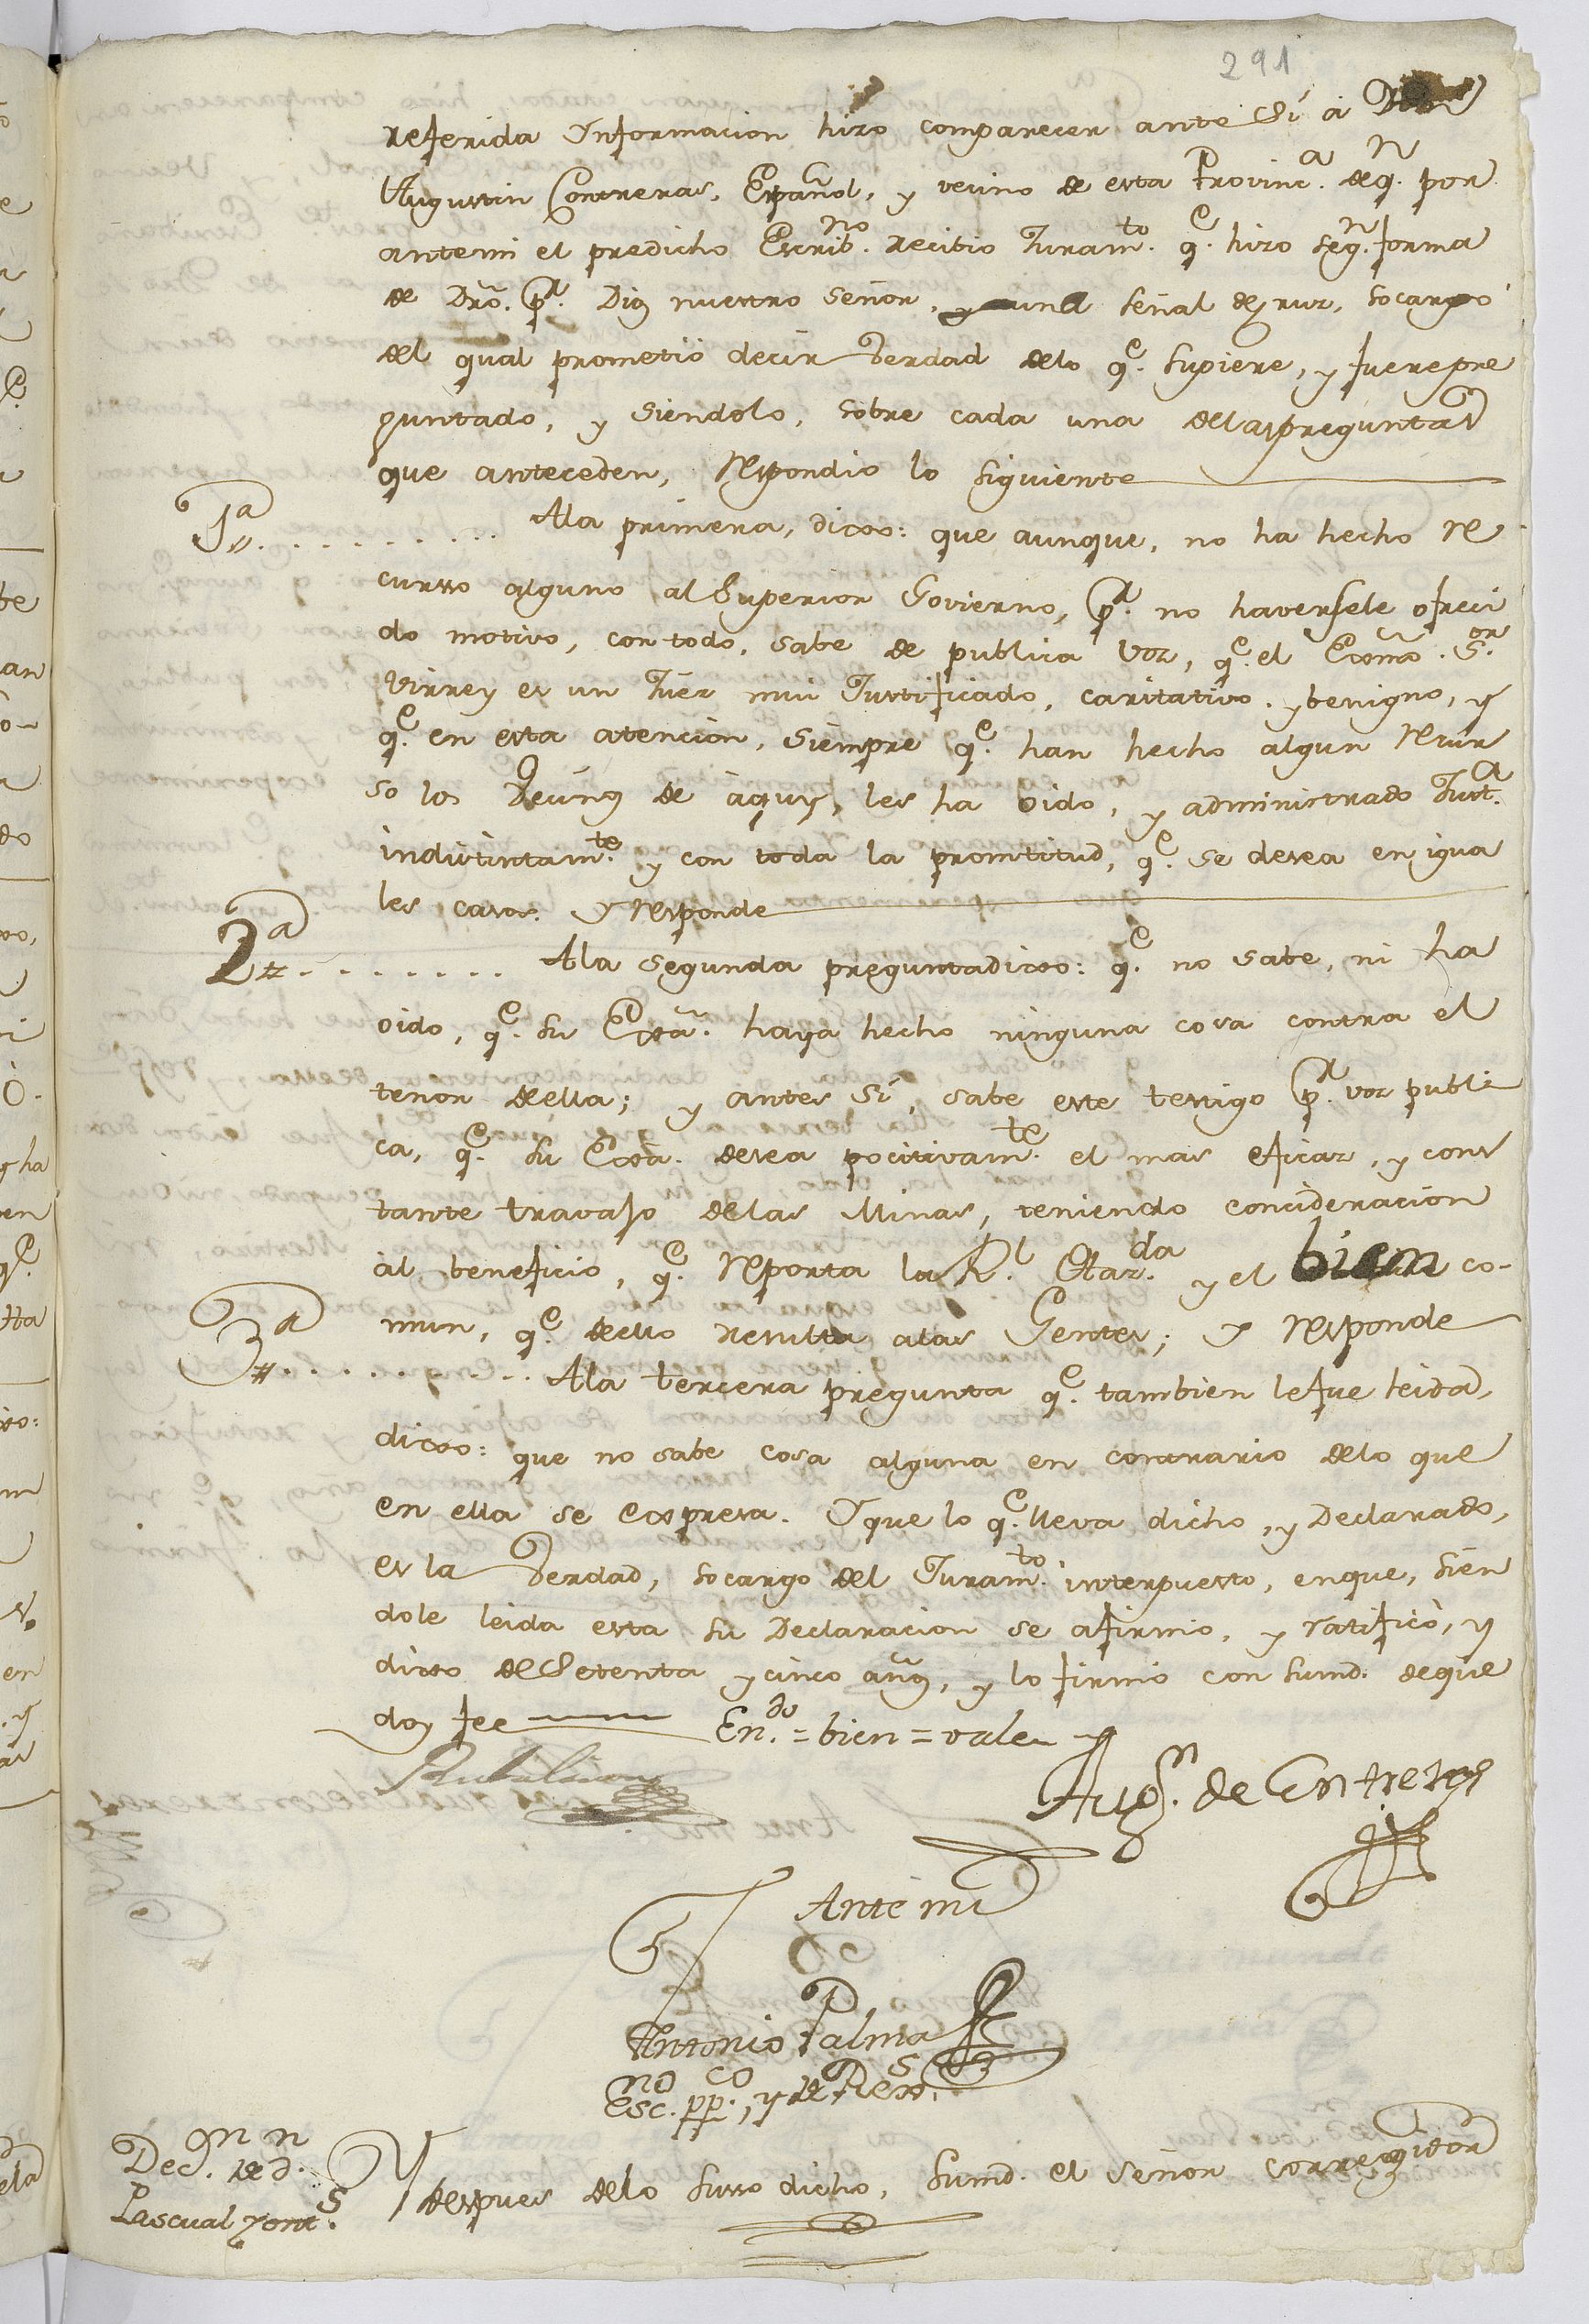 291
referida Ynformacion hizo comparecer ante Si â Don
Augustin Contreras, Español, y vecino de esta Provinc.ª deq.n por
antemi el predicho Escrib.no recibio Juram.to q.e hizo seg.n forma
de Dro. p.r Dios nuestro señor, y una señal de cruz, socargo
del qual prometiò decir Verdad delo q.e supiere, y fuere pre
guntado, y siendolo, sobre cada una delas preguntas
que anteceden, respondio lo siguiente
1.ª Ala primera, dixo: que aunque, no ha hecho re
curso alguno al Superior Govierno, p.r no haversele ofreci
do motivo, con todo, sabe de publica voz, q.e el Exmo. S.or
Virrey es un Juez mui Justificado, caritativo, y benigno, y
q.e en esta atencion, siempre q.e han hecho algun recur
so los Vecinos de àquy, les ha oido, y administrado Just.ª
indistintam.te y con toda la promtitud, q.e se desea en igua
les casos. Y responde
2.ª Ala segunda pregunta dixo: q.e no sabe, ni ha
oido, q.e su Exâ. haya hecho ninguna cosa contra el
tenor de ella; y antes Si, sabe este testigo p.r voz publi
ca, q.e su Exâ. desea pocitivam.te el mas eficaz, y cons
tante travajo delas Minas, teniendo concideracion
âl beneficio, q.e reporta la R.l Haz.da y el bien co-
mun, q.e dello resulta alas Gentes; Y responde
3.ª Ala tercera pregunta q.e tambien lefue leida,
dixo: que no sabe cosa alguna en contrario delo que
en ella se expresa. Y que lo q.e lleva dicho, y Declarado,
es la Verdad, socargo del Juram.to interpuesto, enque, sien
dole leida esta su Declaracion se afirmo, y ratificò, y
dixo de Setenta y cinco años, y lo firmò con sumd. deque
doy fee En.do = bien = vale
Rubalcava
Aug.n de Contreras
Ante mi
Antonio Palma
Esc.no pp.co, y de R.s
Dec.on de d.n
Pascual Cont.s
Y despues delo susso dicho, sumd. el señor corregidor